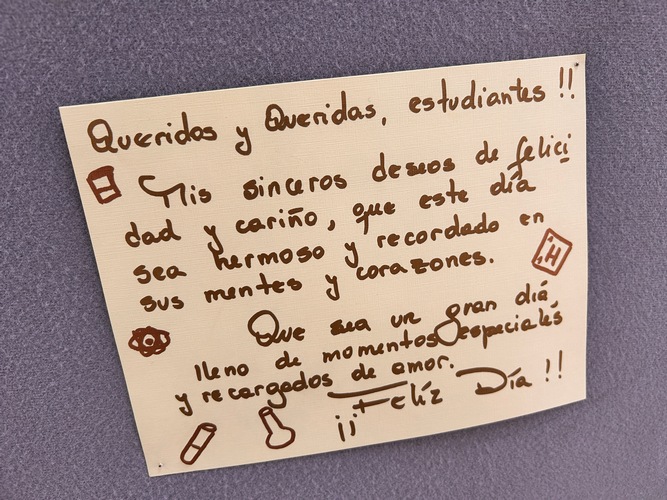 Queridos y Queridas, estudiantes !!
Mis sinceros deseos de felici
dad y cariño, que este día
sea hermoso y recordado en
sus mentes y corazones.
H
Que sea un gran diá,
lleno de momentos especialés
y recargados de amor.
¡¡Felíz Día !!